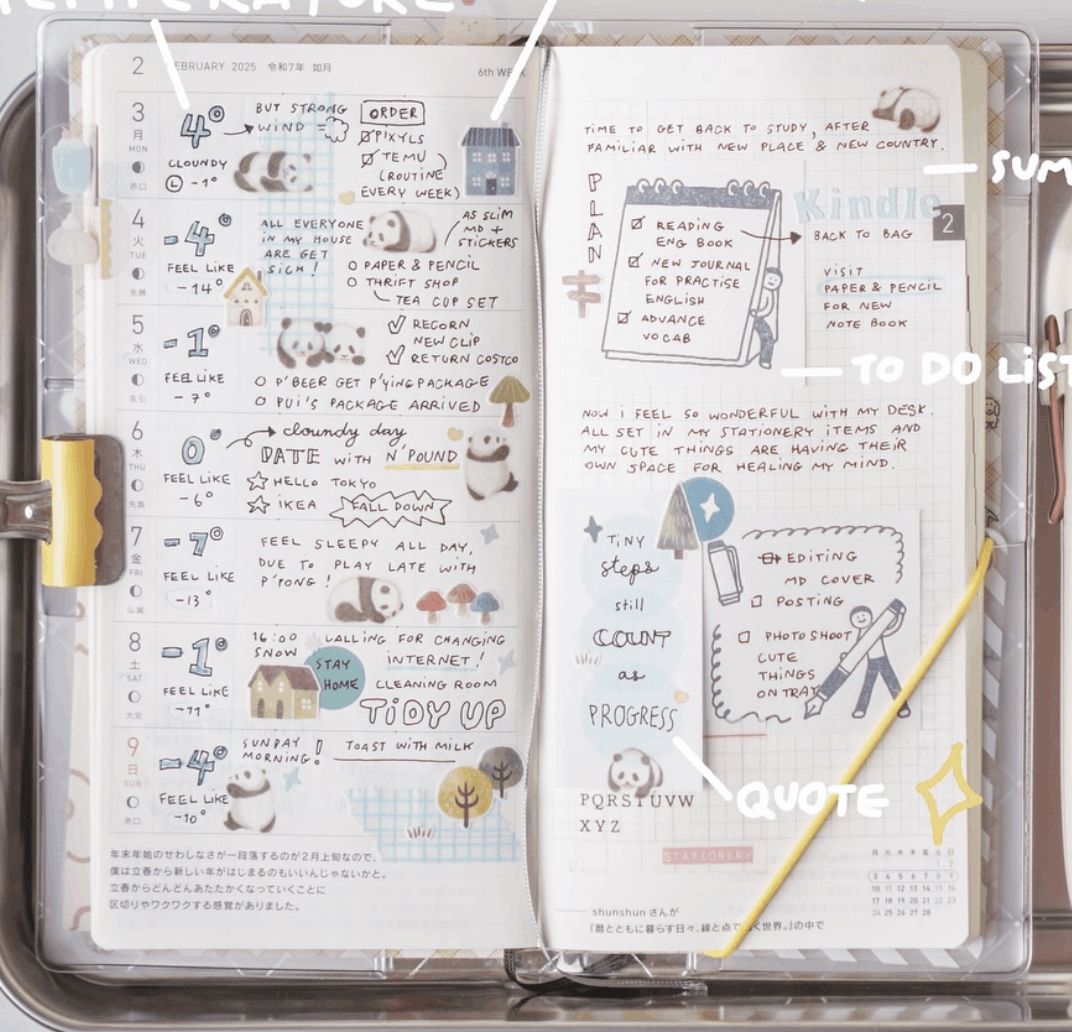 TEMPERATURE
2 FEBRUARY 2025 令和7年 如月
6th WEEK
3
月
MON
赤口
4°
CLOUNDY
L -1°
BUT STRONG
WIND =
ORDER
PIXYLS
TEMU
(ROUTINE
EVERY WEEK)
4
火
TUE
先勝
-4°
FEEL LIKE
-14°
ALL EVERYONE
IN MY HOUSE
ARE GET
SICK!
AS SLIM
MD +
STICKERS
PAPER & PENCIL
THRIFT SHOP
TEA CUP SET
5
水
WED
友引
-1°
FEEL LIKE
-7°
RECORN
NEW CLIP
RETURN COSTCO
P'BEER GET P'YING PACKAGE
PUI'S PACKAGE ARRIVED
6
木
THU
先負
0°
FEEL LIKE
-6°
cloundy day
DATE WITH N'POUND
HELLO TOKYO
IKEA
FALL DOWN
7
金
FRI
仏滅
-7°
FEEL LIKE
-13°
FEEL SLEEPY ALL DAY,
DUE TO PLAY LATE WITH
P'PONG!
8
土
SAT
大安
-1°
FEEL LIKE
-11°
16:00
SNOW
STAY
HOME
CALLING FOR CHANGING
INTERNET!
CLEANING ROOM
TiDY UP
9
日
SUN
赤口
-4°
FEEL LIKE
-10°
SUNDAY
MORNING!
TOAST WITH MILK
年末年始のせわしなさが一段落するのが2月上旬なので、
僕は立春から新しい年がはじまるのもいいんじゃないかと。
立春からどんどんあたたかくなっていくことに
区切りやワクワクする感覚がありました。
TIME TO GET BACK TO STUDY, AFTER
FAMILIAR WITH NEW PLACE & NEW COUNTRY.
SUM
PLAN
READING
ENG BOOK
NEW JOURNAL
FOR PRACTISE
ENGLISH
ADVANCE
VOCAB
Kindle
BACK TO BAG
2
VISIT
PAPER & PENCIL
FOR NEW
NOTE BOOK
TO DO LiST
NOW i FEEL SO WONDERFUL WITH MY DESK.
ALL SET IN MY STATIONERY iTEMS AND
MY CUTE THINGS ARE HAVING THEIR
OWN SPACE FOR HEALING MY MIND.
TiNY
steps
still
COUNT
as
PROGRESS
EDITING
MD COVER
POSTING
PHOTOSHOOT
CUTE
THINGS
ON TRAY
QUOTE
PQRSTUVW
XYZ
STATIONERY
月 火 水 木 金 土 日
1 2
3 4 5 6 7 8 9
10 11 12 13 14 15 16
17 18 19 20 21 22 23
24 25 26 27 28
shunshun さんが
『暦とともに暮らす日々、線と点で く世界。』の中で